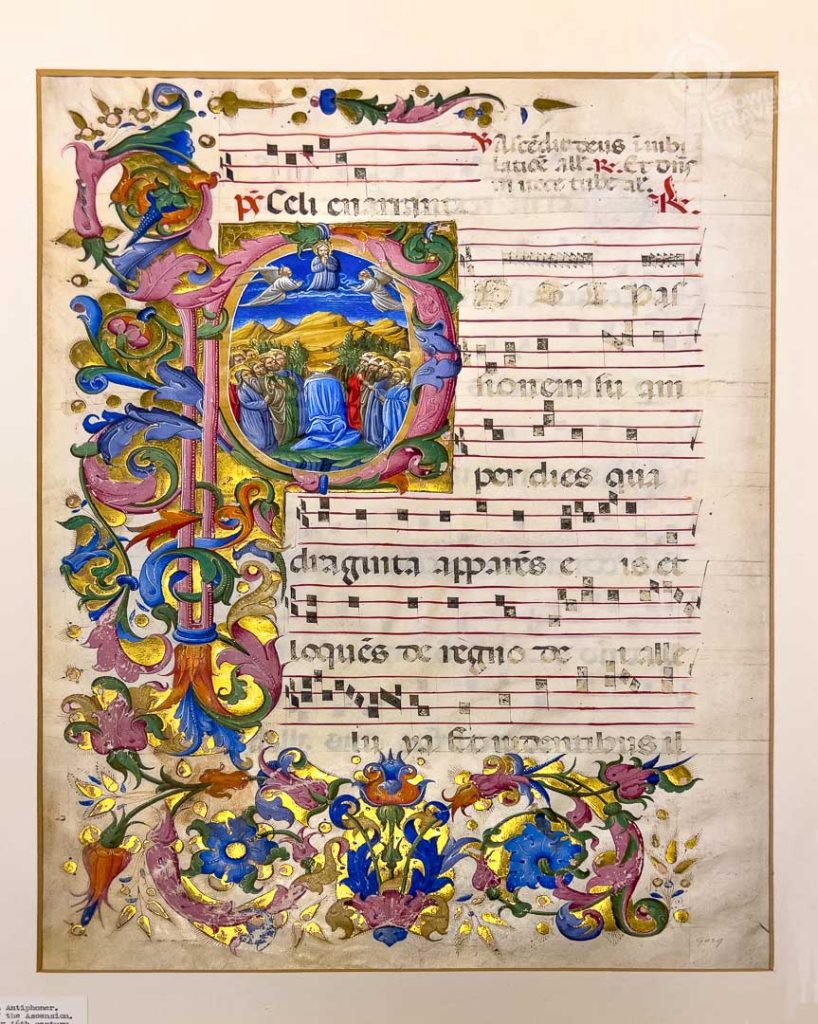 Ascēdit deus ī iubi
latiōe all. ℟. Et dn̄s
in uoce tube al.
ps Celi enarrant ℟.
O S T pas
sionem su am
per dies qua
draginta apparēs e is et
loquēs de regno de i alle
lu ya Et uidentibus il
Antiphoner.
the Ascension.
16th century